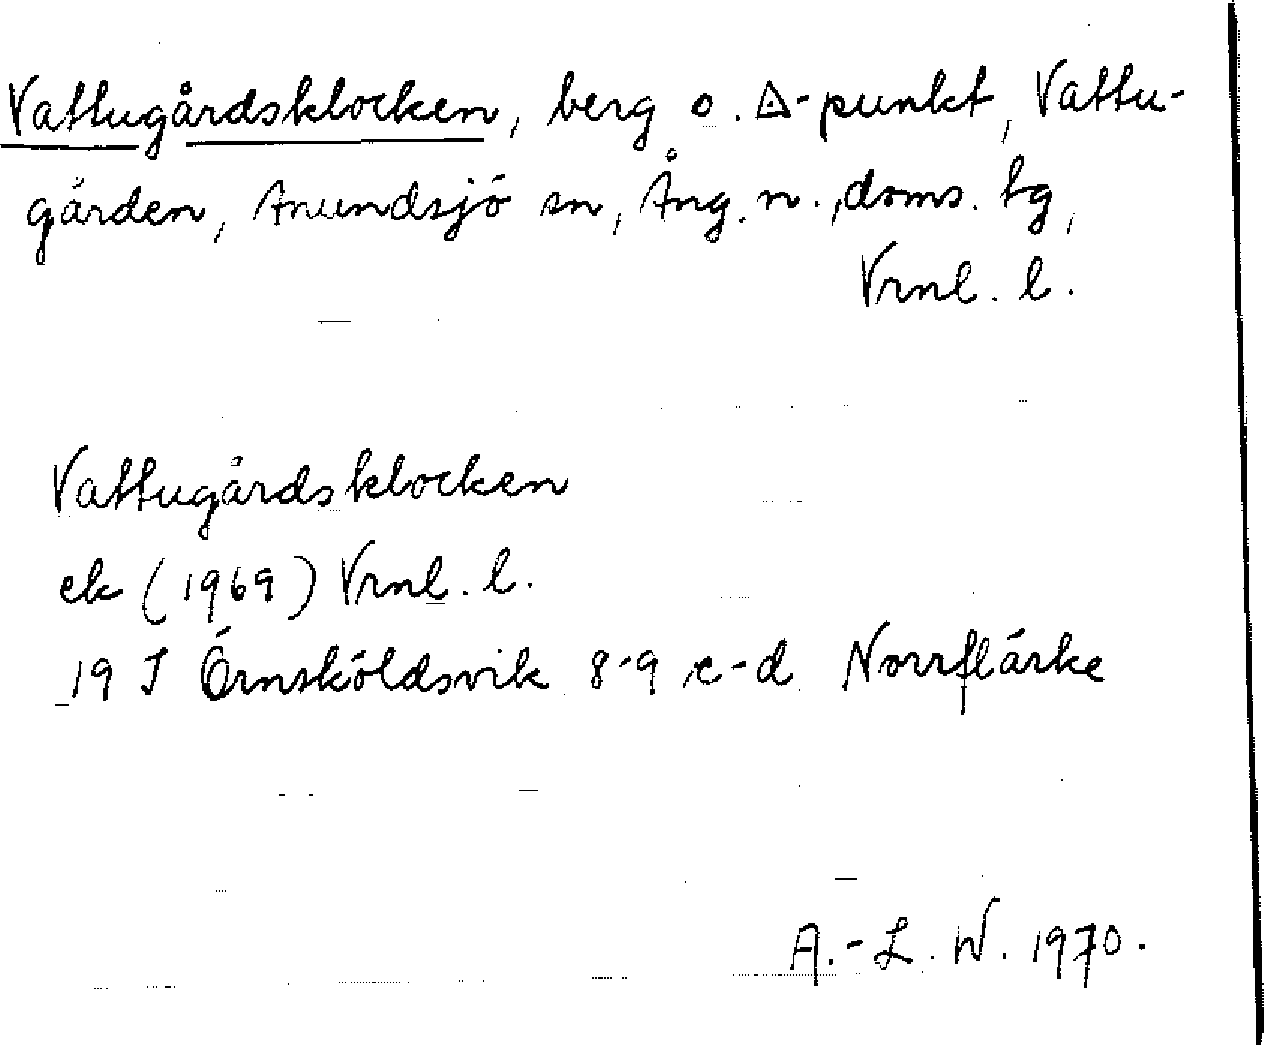 Vattugårdsklocken, berg o. ∆-punkt, Vattu-
gården, Anundsjö sn, Ång. n., doms. tg,
Vrnl. l.
Vattugårdsklocken
ek (1969) Vrnl. l.
19 J Örnsköldsvik 8-9 c-d Norrflärke
A.-L. W. 1970.